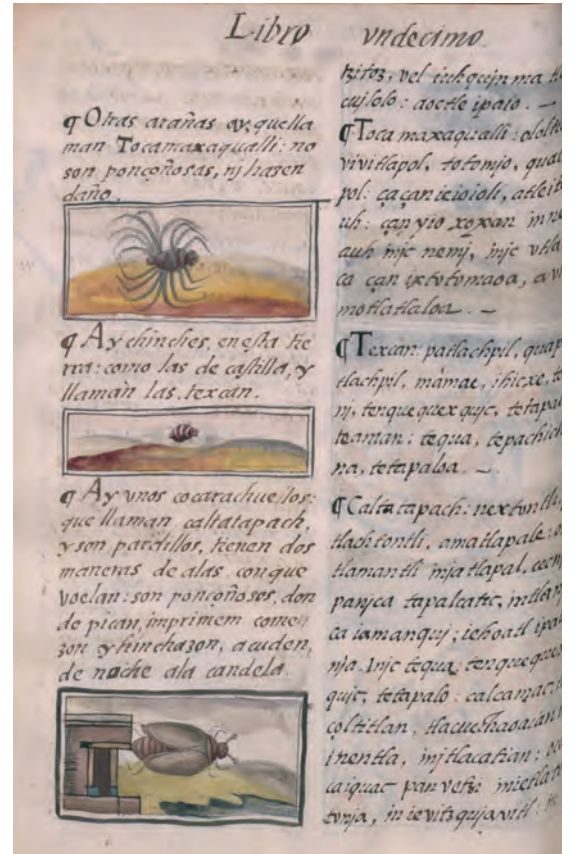 Libro vndecimo.
¶ Otras arañas ay, que lla
man Tocamaxaqualli: no
son ponçoñosas, nj hazen
daño.
¶ Ay chinches, en esta tie
rra: como las de castilla, y
llaman las. texcan.
¶ Ay vnos cocarachuelos:
que llaman caltatapach,
y son pardillos, tienen dos
maneras de alas, con que
voelan: son ponçoñosos, don
de pican, imprimem comen
zon y hinchazon, acuden,
de noche ala candela.
tzitoz, vel iuhquin ma
cujlolo: aoctle ipaio.
¶ Toca maxaqualli: ololt
vivitlapol, totomjo, qual
pol: çaçan ieioioli, atleit
uh: çan yio xopan in ne
auh injc nemj, injc vtla
ca çan ixtotomaoa, a
motlatlaloa.
¶ Texcan: patlachpil, quap
tlachpil, màmae, ihicxe, te
nj, tenquequexqujc, tetapal
teaman: tequa, tepachich
na, tetapaloa.
¶ Caltatapach: nextontli,
tlachtontli, amatlapale:
tlamantli mjatlapal, cecnj
panjca tapalcatic, in tlanj
ca iamanquj; iehoatl ipa
nja. Injc tequa: tenqueque
qujc, tetapalo: calcamac,
coltitlan, tlacuchaoaian
inentla, injtlacatian:
iaiquac pan vetzi mietla
tonja, in ievitz qujavitl: